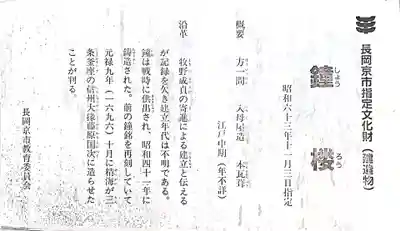 長岡京市指定文化財（建造物）
鐘楼
しょう ろう
昭和六十三年十一月三日指定
概要 方一間 入母屋造 本瓦葺
江戸中期（年不詳）
沿革 牧野成貞の寄進による建立と伝える
が記録を欠き建立年代は不明である。
鐘は戦時に供出され、昭和四十一年に
鋳造された。前の鐘銘を再刻していて
元禄九年（一六九六）十月に精海が三
条釜座の信州大掾藤原国次に造らせた
ことが判る。
長岡京市教育委員会